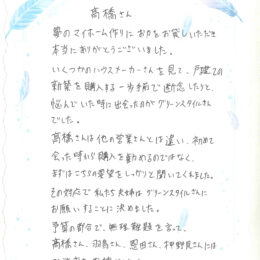 高橋さん
夢のマイホーム作りにお力をお貸しいただき
本当にありがとうございました。
いくつかのハウスメーカーさんを見て、戸建ての
新築を購入する一歩手前で断念したりと、
悩んでいた時に出会ったのがグリーンスタイルさん
でした。
高橋さんは他の営業さんとは違い、初めて
会った時から購入を勧めるのではなく、
まずはこちらの要望をしっかりと聞いてくれました。
その対応で私たち夫婦はグリーンスタイルさんに
お願いすることに決めました。
予算の都合で、無理難題を言って、
高橋さん、羽鳥さん、恩田さん、押野見さんには